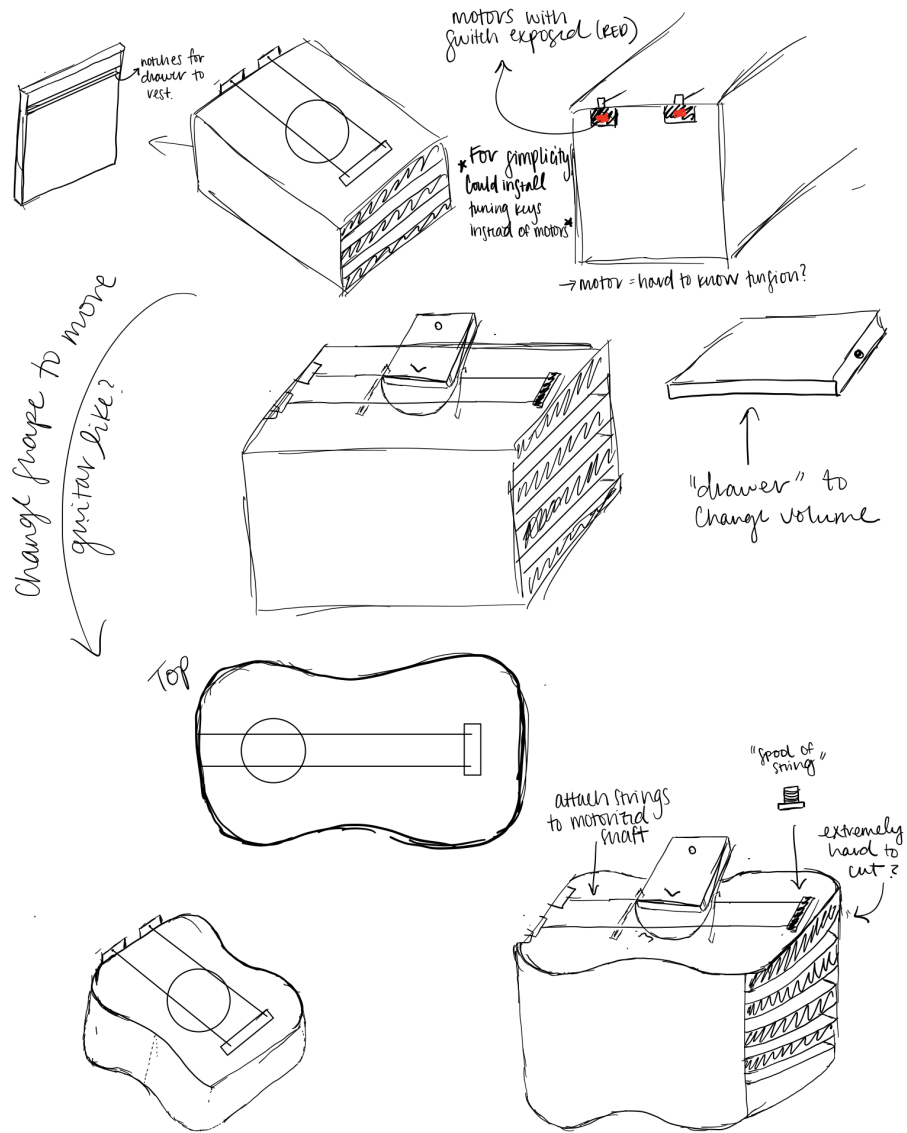 notches for
drawer to
rest.
motors with
switch exposed (RED)
*For simplicity,
could install
tuning keys
instead of motors*
→ motor = hard to know tension?
Change shape to more
guitar like?
"drawer" to
Change volume
TOP
"spool of
string"
attach strings
to motorized
shaft
extremely
hard to
cut?